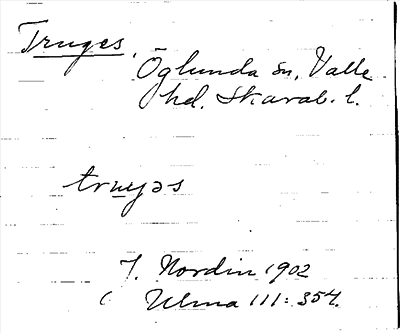 Truges,
Öglunda sn, Valle
hd. Skarab. l.
truyəs
J. Nordin 1902
Ulma 111: 354.